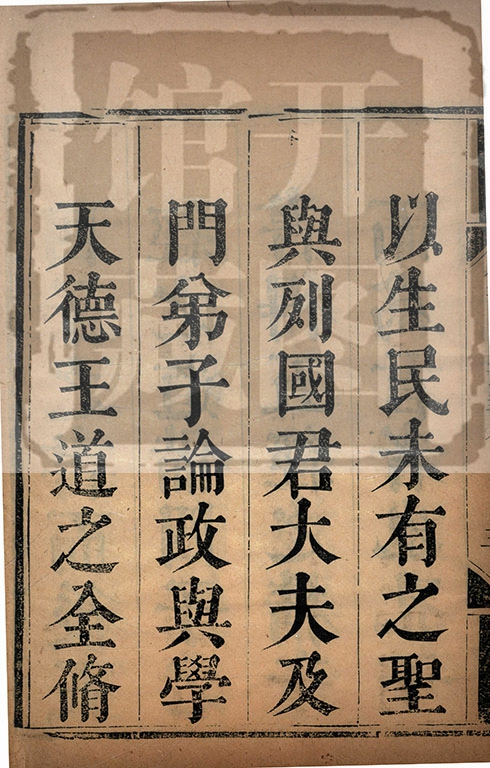 以生民未有之聖
與列國君大夫及
門弟子論政與學
天德王道之全脩